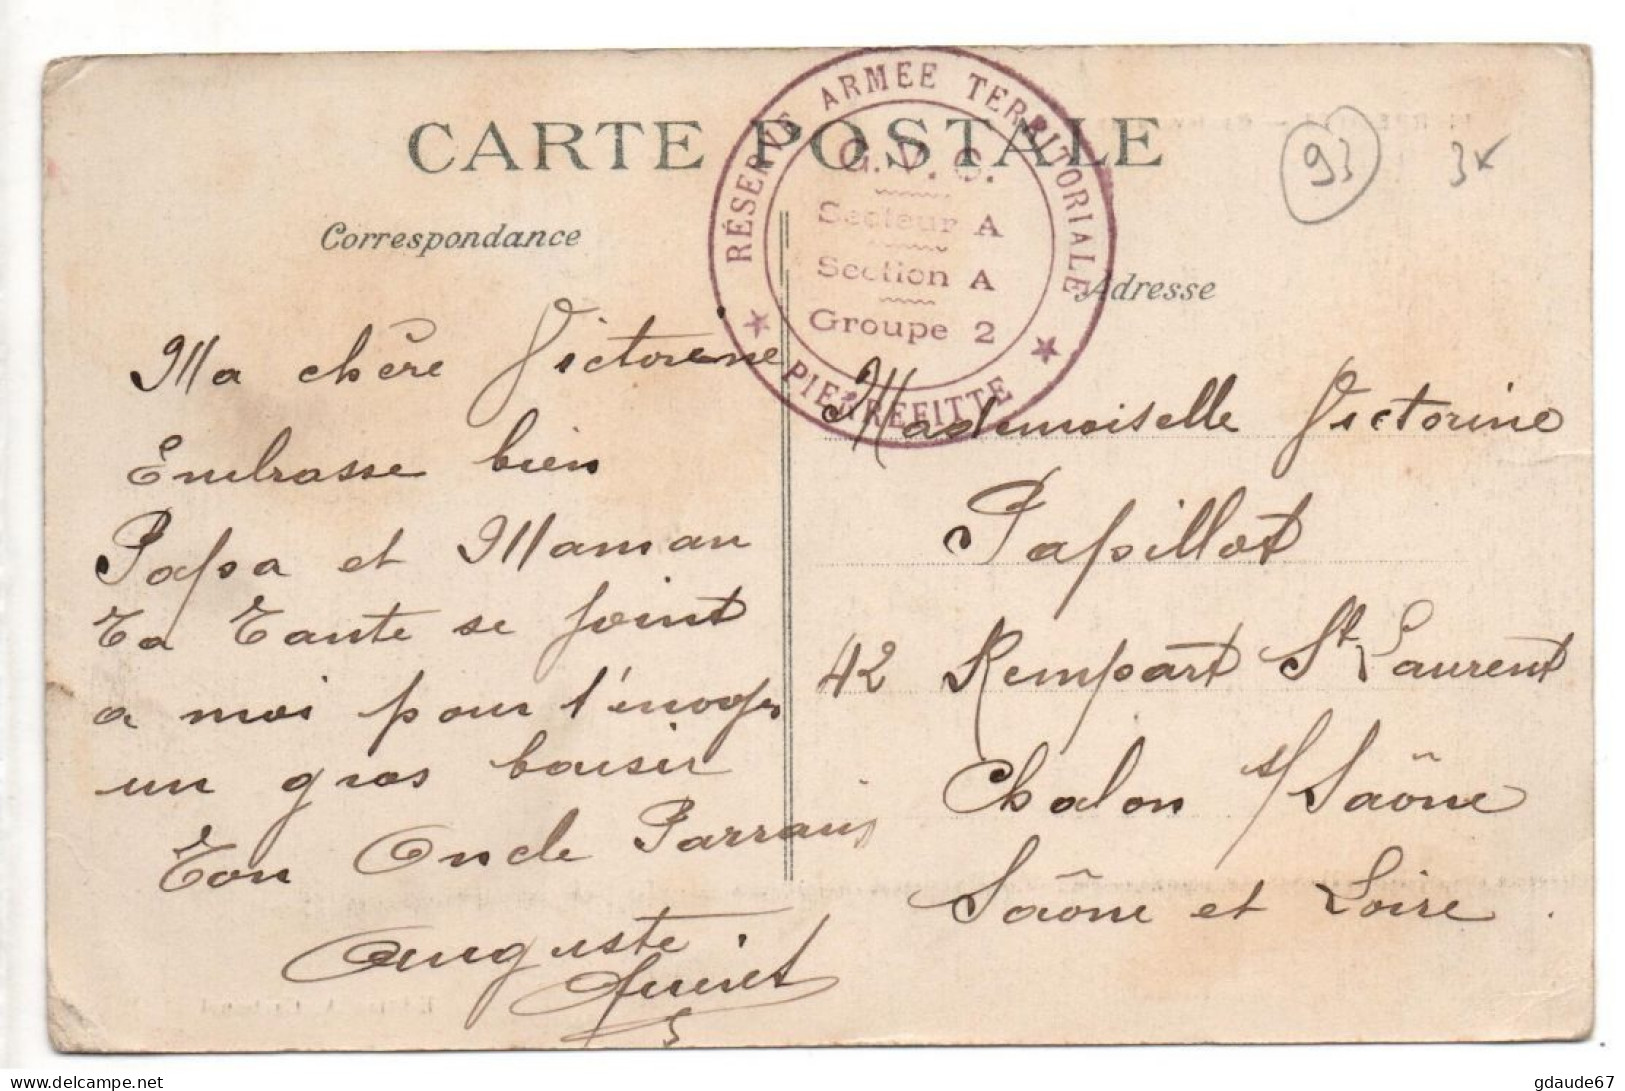 CARTE POSTALE
RÉSERVE ARMEE TERRITORIALE
G. V. C.
Secteur A
Section A
Groupe 2
PIERREFITTE
93
3
Correspondance
Adresse
Ma chère Victorine
Embrasse bien
Papa et Maman
Ta Tante se joint
a moi pour t'envoyer
un gros baiser
Ton Oncle Parrain
Auguste
Mademoiselle Victorine
Papillot
42 Rempart St Laurent
Chalon s/Saône
Saône et Loire.
gdaude67